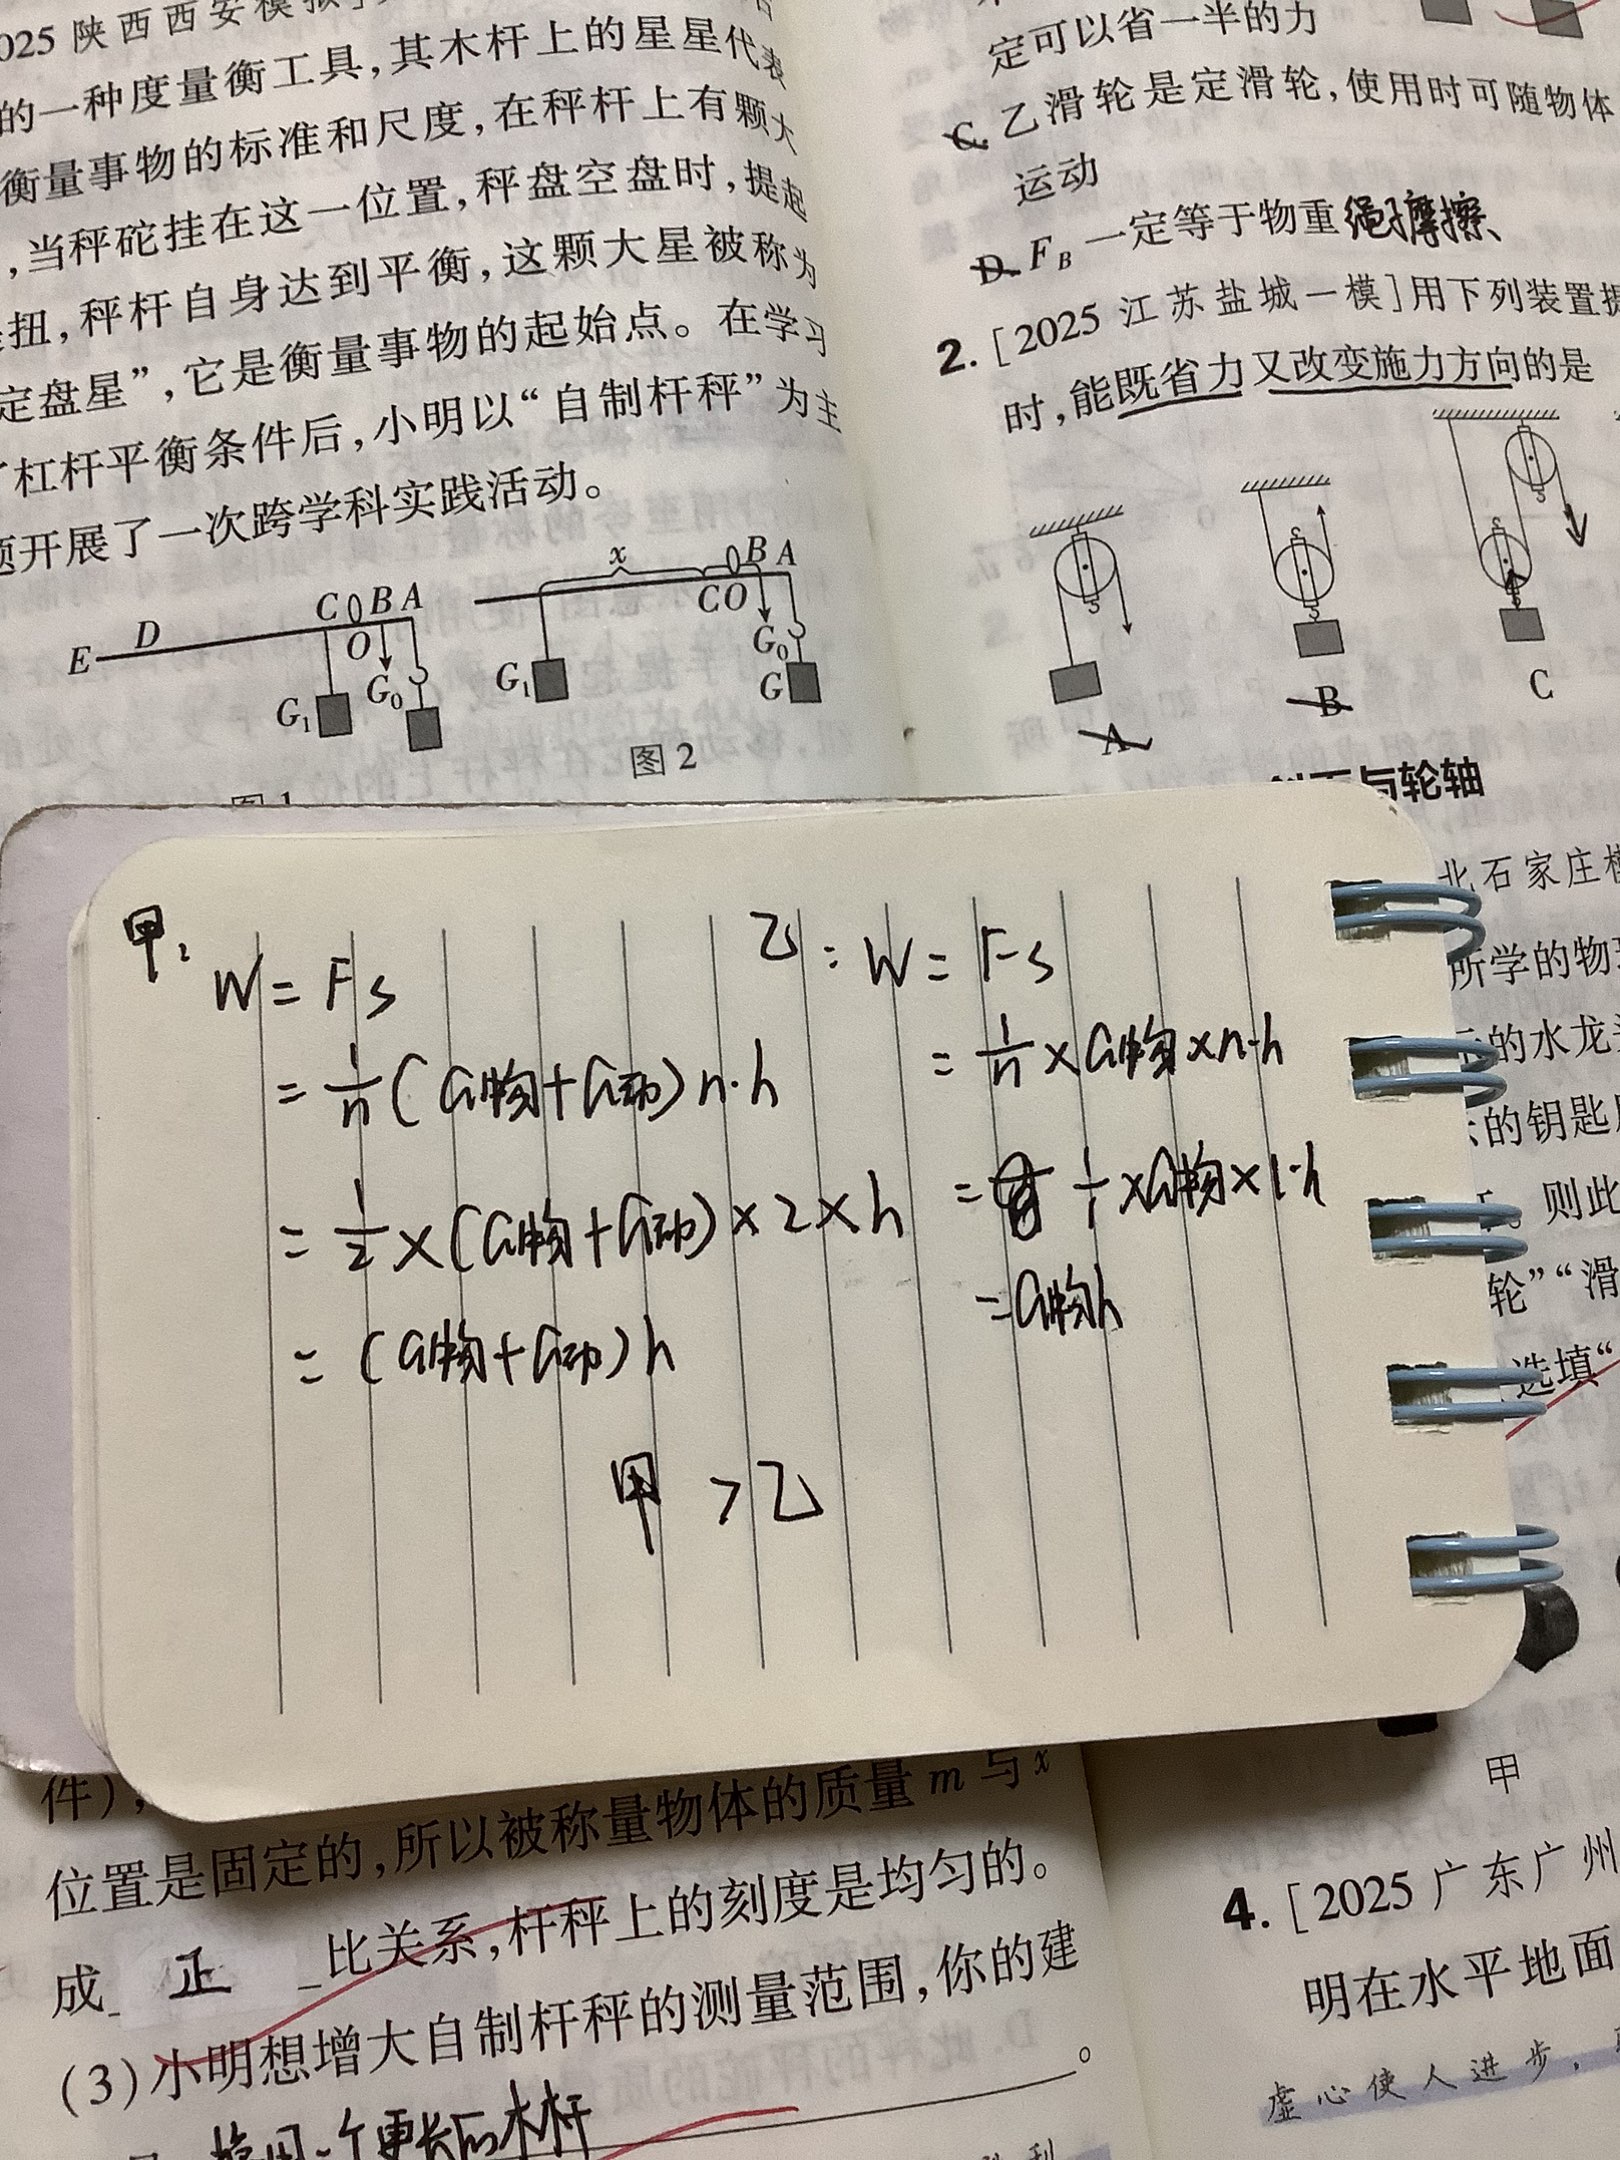 025 陕西西安模拟
的一种度量衡工具,其木杆上的星星代表
衡量事物的标准和尺度,在秤杆上有颗大
,当秤砣挂在这一位置,秤盘空盘时,提起
扭,秤杆自身达到平衡,这颗大星被称为
定盘星”,它是衡量事物的起始点。在学习
了杠杆平衡条件后,小明以“自制杆秤”为主
题开展了一次跨学科实践活动。
E D C O B A
G₁ G₀
x
B A
C O
G₁ G₀
G
图2
图1
定可以省一半的力
C. 乙滑轮是定滑轮,使用时可随物体
运动
D. F_B 一定等于物重 绳子摩擦、
2. [2025 江苏盐城一模]用下列装置提
时,能既省力又改变施力方向的是
A
B
C
斜面与轮轴
北石家庄模
所学的物理
的水龙头
的钥匙
则此
轮”“滑
选填“
甲:
W = Fs
= 1/n (G物+G动) n·h
= 1/2 × (G物+G动) × 2 × h
= (G物+G动) h
乙: W = Fs
= 1/n × G物 × n·h
= 1/1 × G物 × 1·h
= G物h
甲 > 乙
件),
位置是固定的,所以被称量物体的质量 m 与 x
成 正 比关系,杆秤上的刻度是均匀的。
(3)小明想增大自制杆秤的测量范围,你的建
。
换用一个更长的木杆
甲
4. [2025 广东广州
明在水平地面
虚心使人进步,